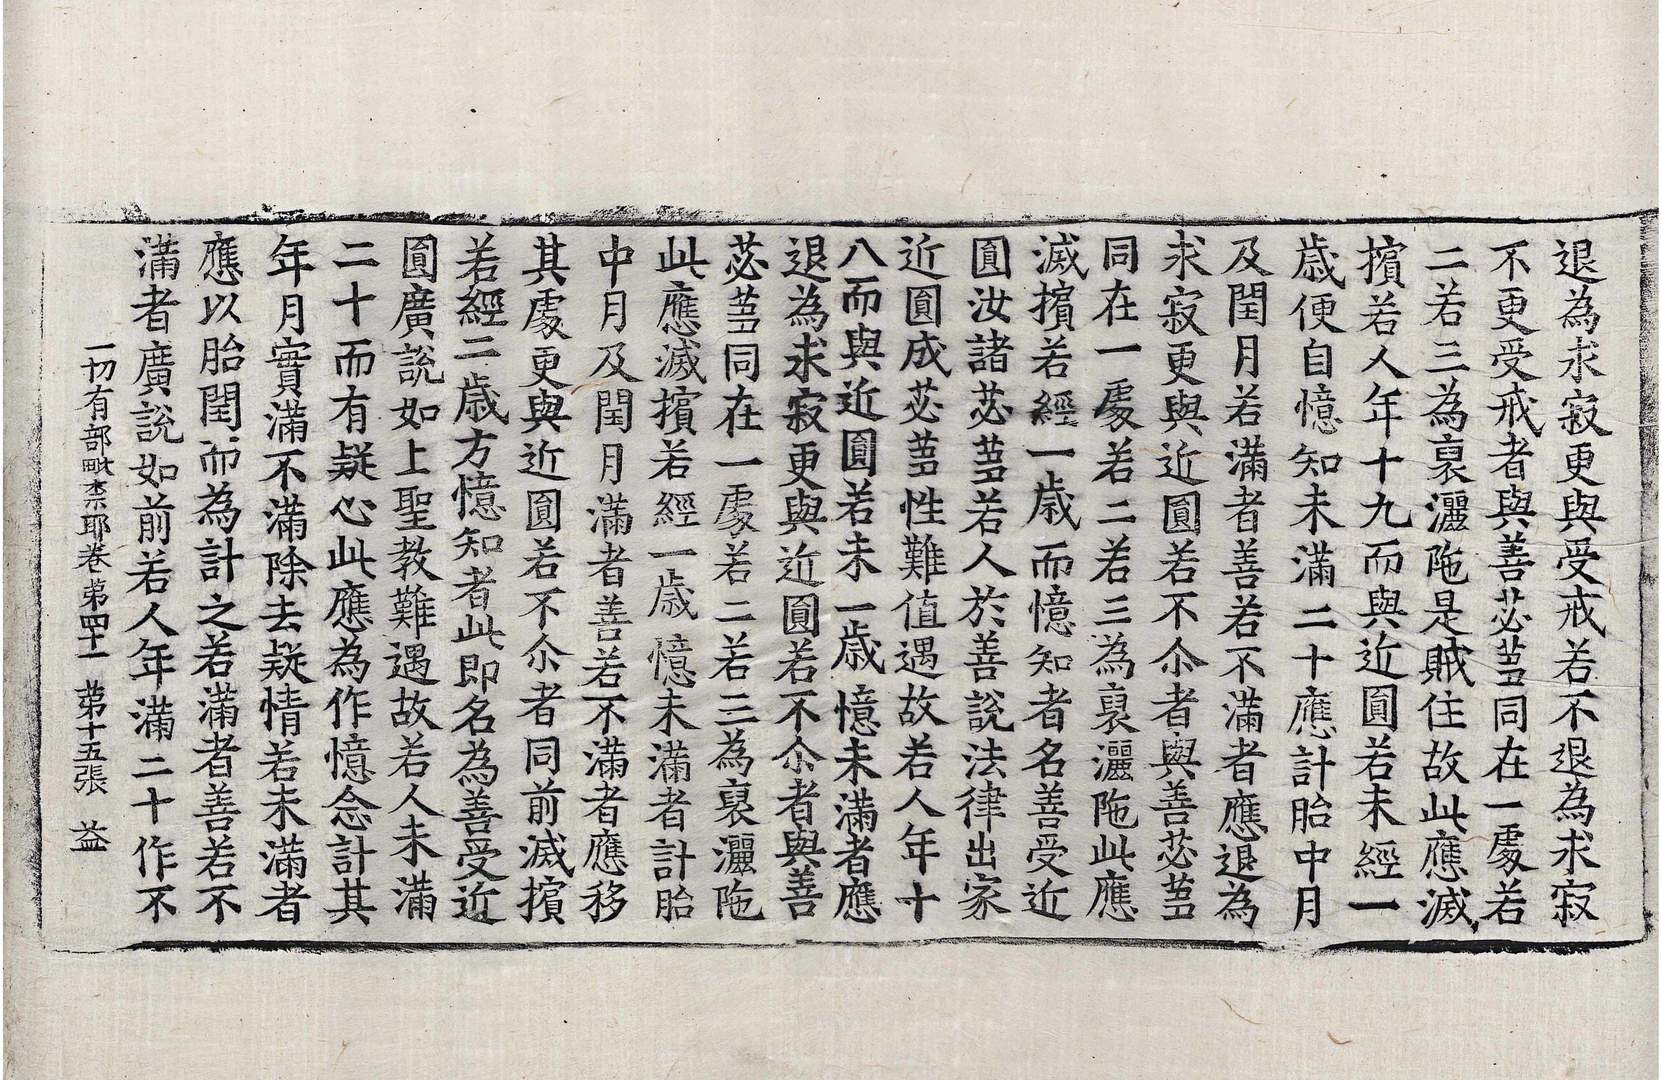 退為求寂更與受戒若不退為求寂
不更受戒者與善苾蒭同在一處若
二若三為裒灑陁是賊住故此應滅
擯若人年十九而與近圓若未經一
歲便自憶知未滿二十應計胎中月
及閏月若滿者善若不滿者應退為
求寂更與近圓若不尒者與善苾蒭
同在一處若二若三為裒灑陁此應
滅擯若經一歲而憶知者名善受近
圓汝諸苾蒭若人於善說法律出家
近圓成苾蒭性難值遇故若人年十
八而與近圓若未一歲憶未滿者應
退為求寂更與近圓若不尒者與善
苾蒭同在一處若二若三為裒灑陁
此應滅擯若經一歲憶未滿者計胎
中月及閏月滿者善若不滿者應移
其處更與近圓若不尒者同前滅擯
若經二歲方憶知者此即名為善受近
圓廣說如上聖教難遇故若人未滿
二十而有疑心此應為作憶念計其
年月實滿不滿除去疑情若未滿者
應以胎閏而為計之若滿者善若不
滿者廣說如前若人年滿二十作不
一切有部毗柰耶卷苐四十一 苐十五張 益